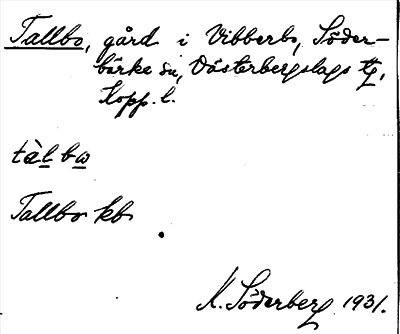 Tallbo, gård i Vibberbo, Söder-
bärke sn, Västerbergslags tg,
Kopp. l.
tàlbω
Tallbo kb
K. Söderberg 1931.